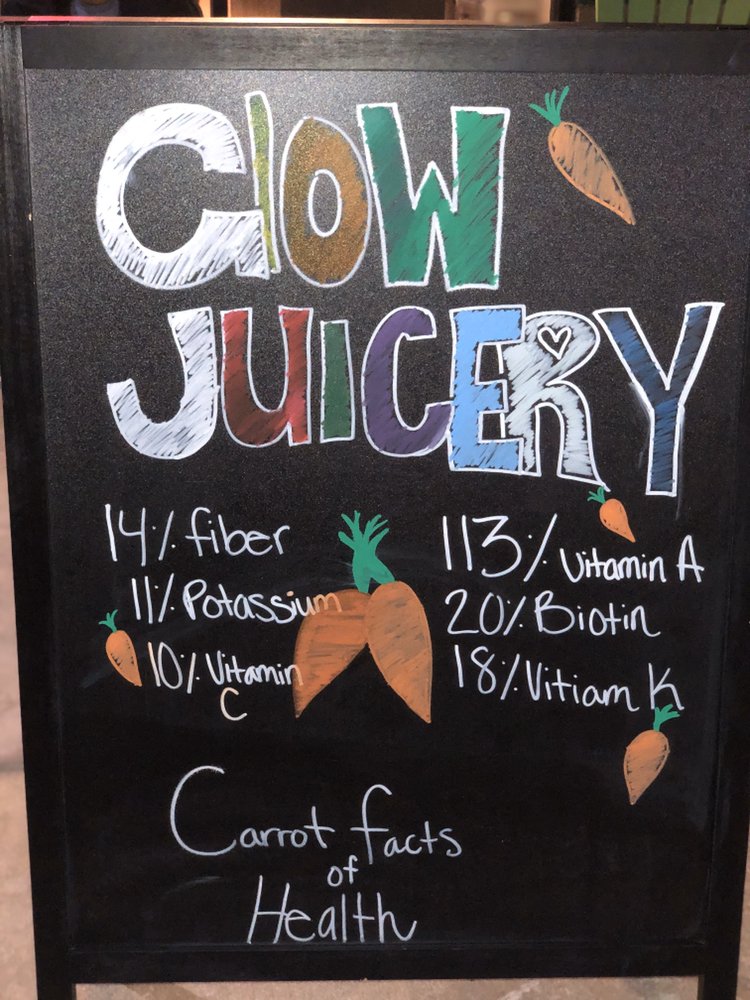 GlOW
JUICERY
14% fiber
11% Potassium
10% Vitamin
C
113% Vitamin A
20% Biotin
18% Vitiam K
Carrot facts
of
Health